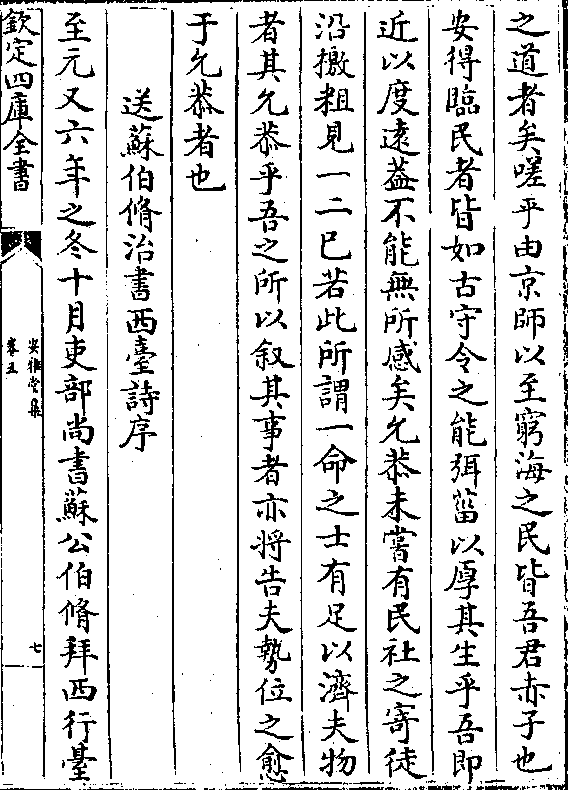 之道者矣嗟乎由京師以至窮海之民皆吾君赤子也
安得臨民者皆如古守令之能弭菑以厚其生乎吾即
近以度遠葢不能無所感矣允恭未嘗有民社之寄徒
沿檄粗見一二已若此所謂一命之士有足以濟夫物
者其允恭乎吾之所以叙其事者亦將告夫勢位之愈
于允恭者也
送蘇伯脩治書西臺詩序
至元又六年之冬十月吏部尚書蘇公伯脩拜西行臺
欽定四庫全書
安雅堂集
卷五
七